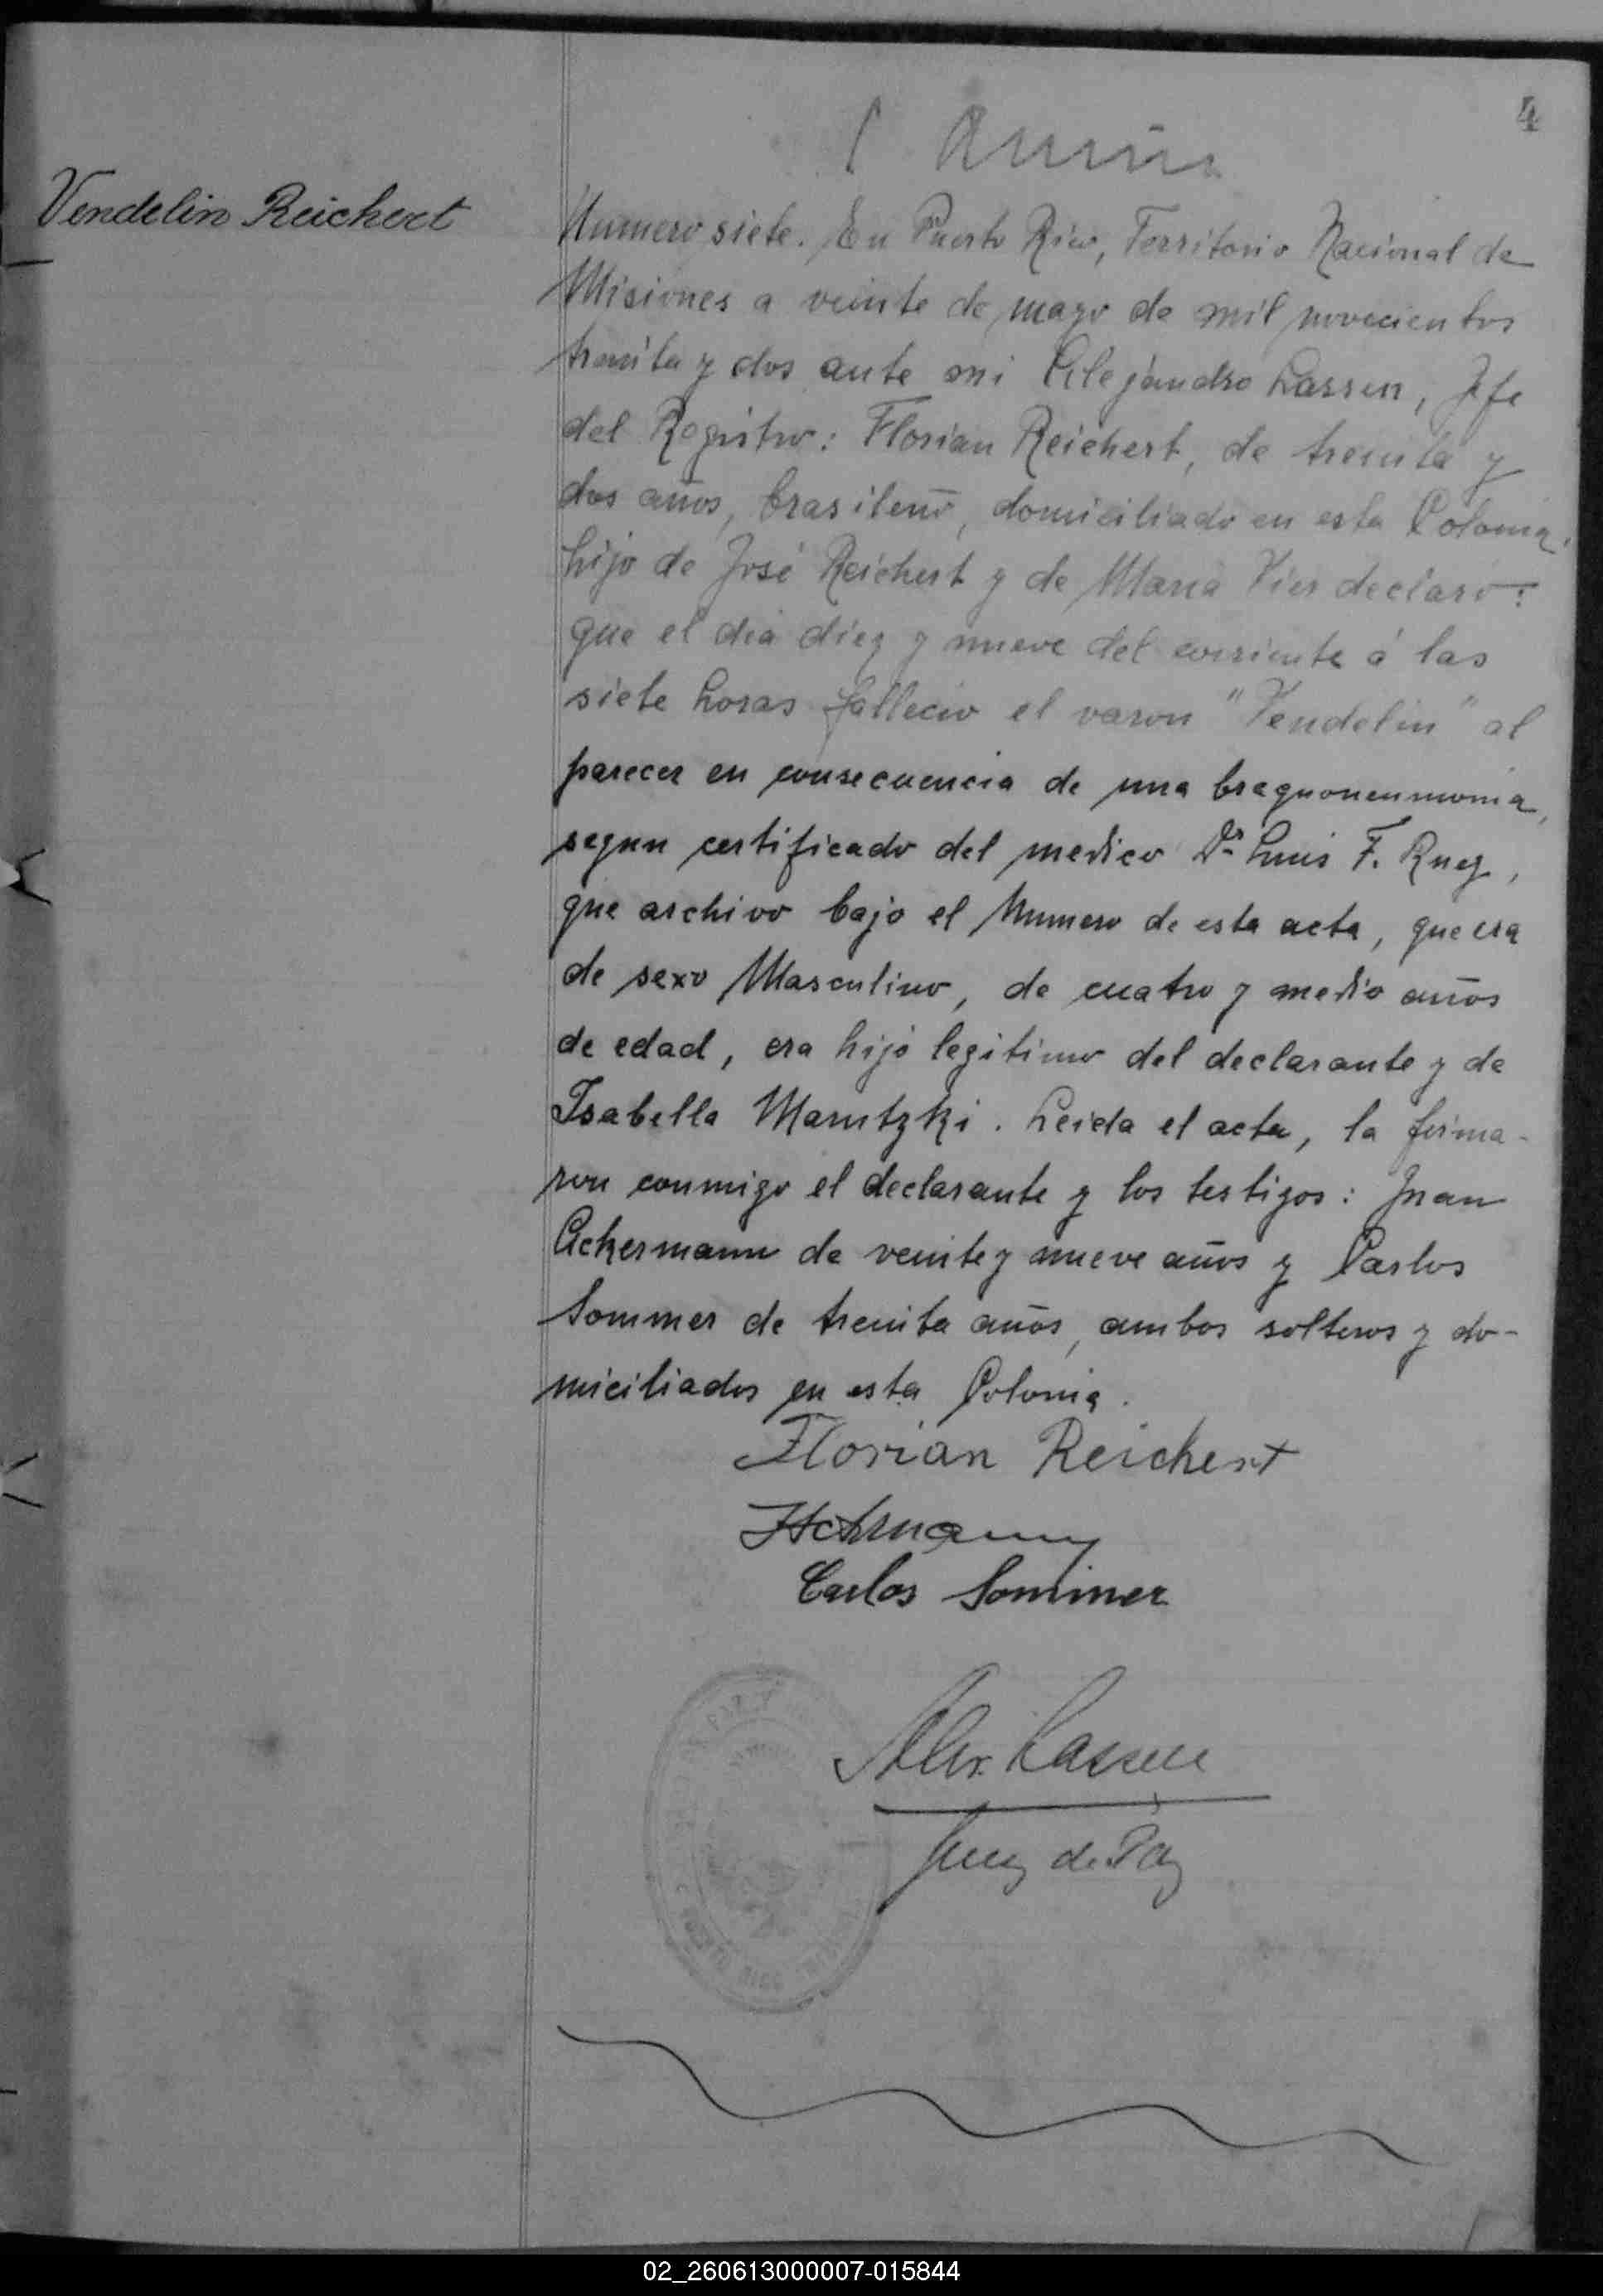 4
Vendelin Reichert
Numero siete. En Puerto Rico, Territorio Nacional de
Misiones a veinte de mayo de mil novecientos
treinta y dos ante mi Alejandro Lassen, Jefe
del Registro: Florian Reichert, de treinta y
dos años, brasileño, domiciliado en esta Colonia,
hijo de José Reichert y de Maria Vier declaró:
que el dia diez y nueve del corriente á las
siete horas fallecio el varon "Vendelin" al
parecer en consecuencia de una bragnoneumonia,
segun certificado del medico Dr Luis F. Ruez,
que archivo bajo el Numero de esta acta, que era
de sexo Masculino, de cuatro y medio años
de edad, era hijo legitimo del declarante y de
Isabella Marutzki. Leida el acta, la firma-
ron conmigo el declarante y los testigos: Juan
Ackermann de veinte y nueve años y Carlos
Sommer de treinta años, ambos solteros y do-
miciliados en esta Colonia.
Florian Reichert
Carlos Sommer
Alex. Lassen
Juez de Paz
02_260613000007-015844